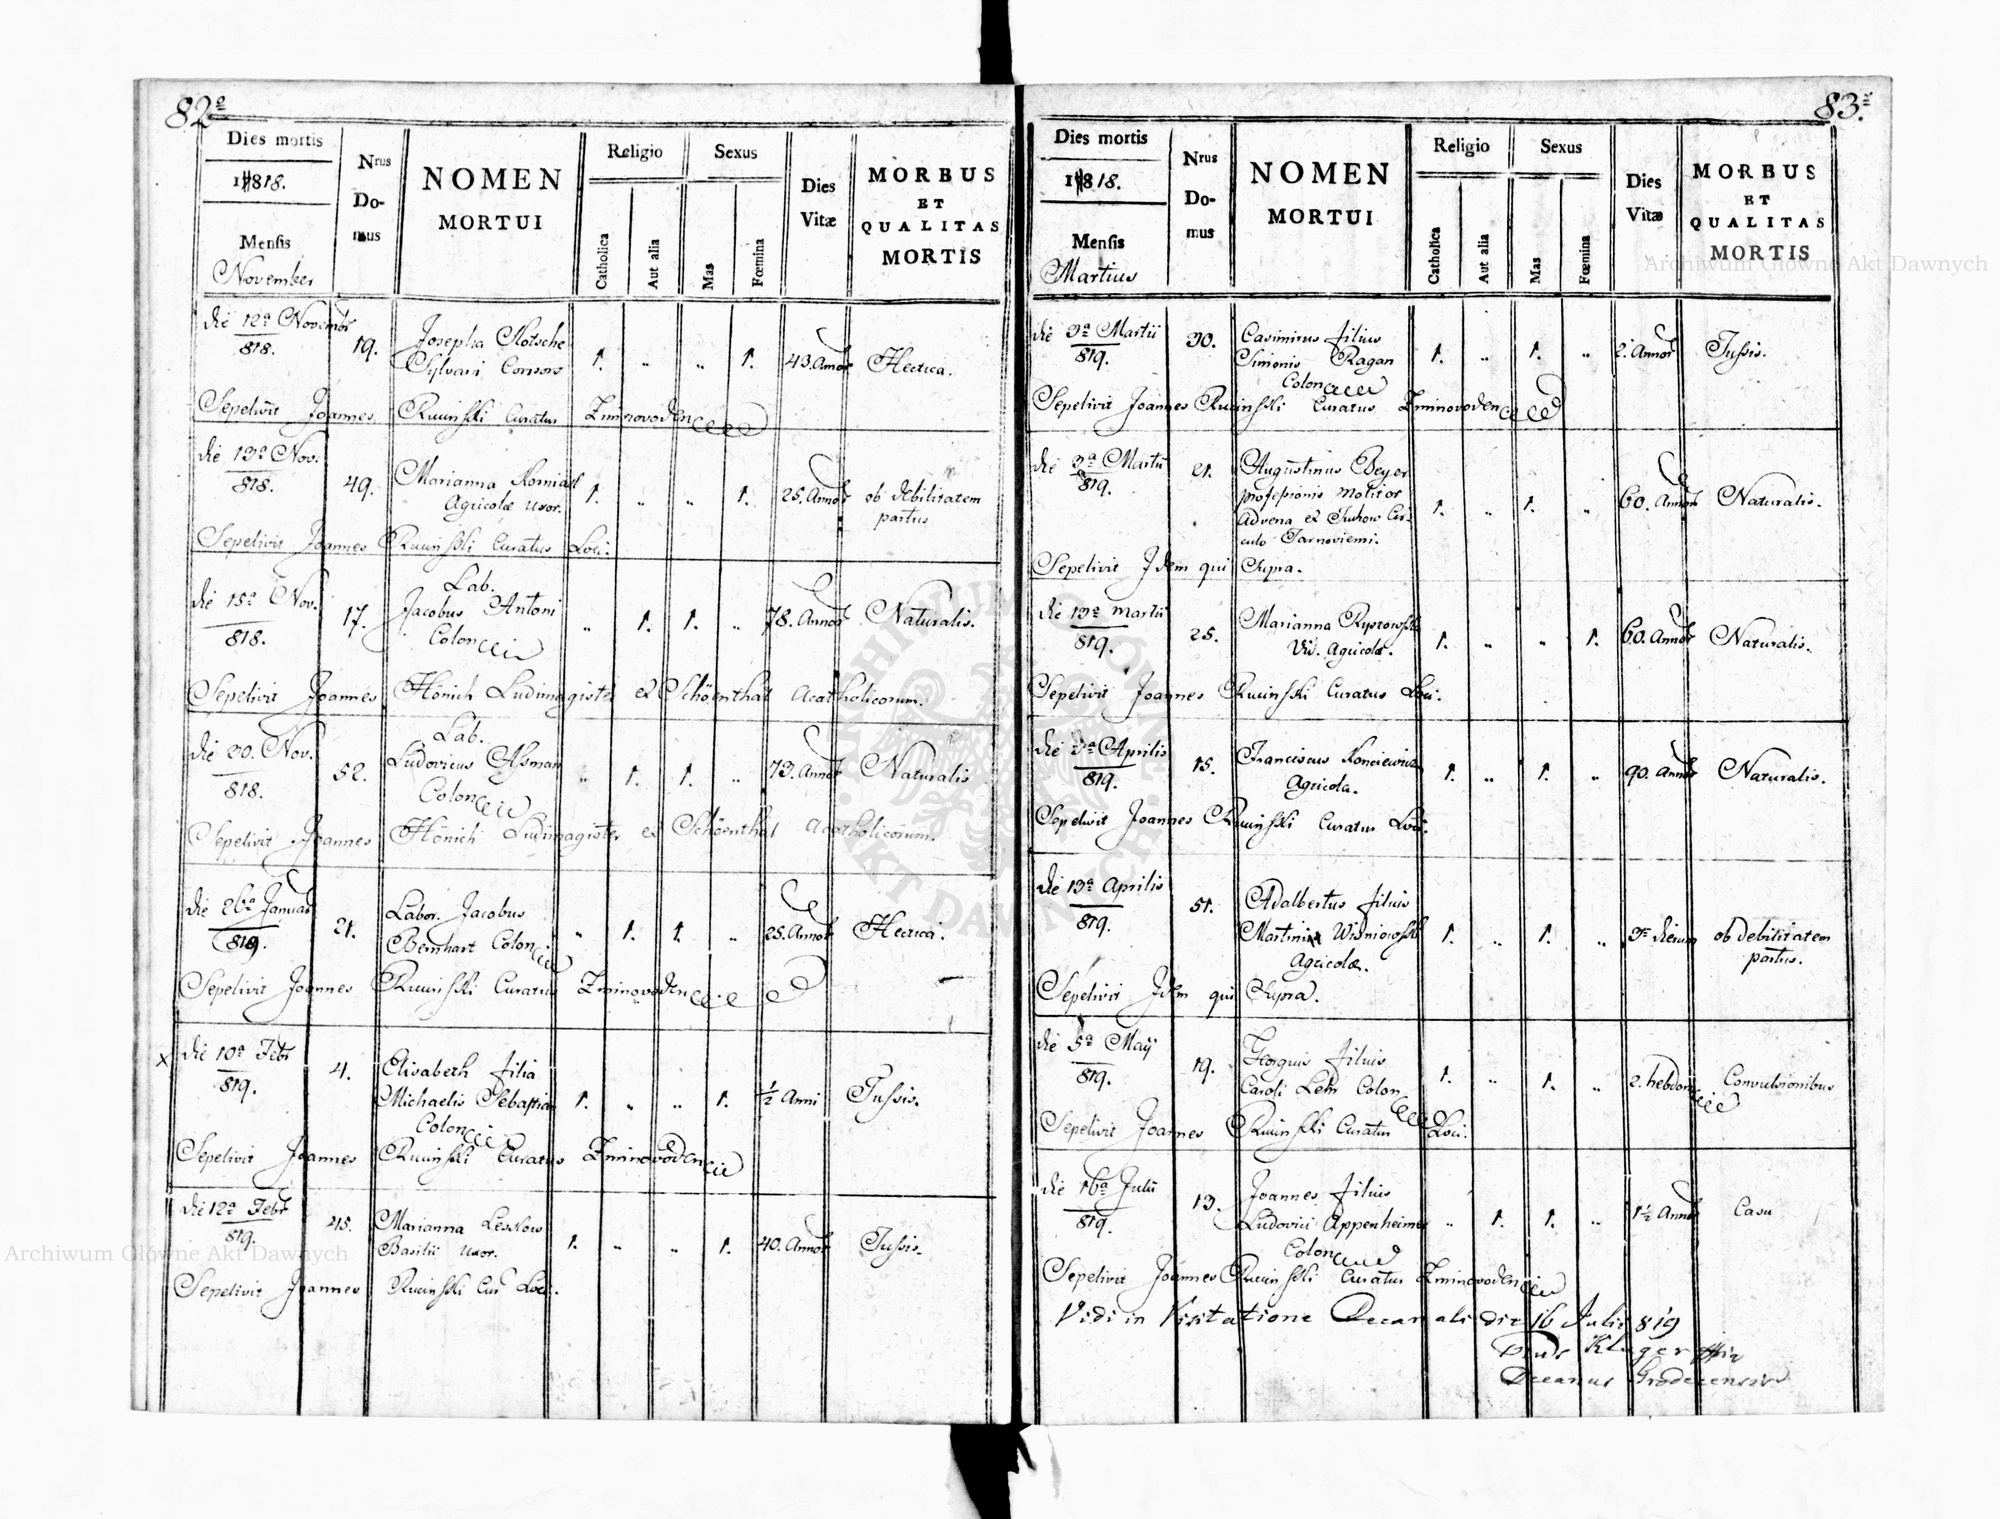 82
Dies mortis
1818.
Mensis
November
Nrus
Do-
mus
NOMEN
MORTUI
Religio
Catholica
Aut alia
Sexus
Mas
Fœmina
Dies
Vitæ
MORBUS
ET
QUALITAS
MORTIS
die 12a Novembr
818.
19.
Josepha
Sylvani Consors
1. „ „ 1.
43. Annor
Hectica.
Sepelivit Joannes Rucinski Curatus Zimnovodencis
die 13a Nov.
818.
49.
Marianna
Agricolæ uxor.
1. „ „ 1.
25. Annor
ob debilitatem
partus
Sepelivit Joannes Rucinski Curatus Loci.
die 15a Nov.
818.
17.
Lab.
Jacobus Antoni
Colon
„ 1. 1. „
78. Annor
Naturalis.
Sepelivit Joannes Hönich Ludimagister ex Schöenthal Acatholicorum.
die 30. Nov.
818.
52.
Lab.
Ludovicus Asman
Colon
„ 1. 1. „
73. Annor
Naturalis
Sepelivit Joannes Hönich Ludimagister ex Schöenthal Acatholicorum.
die 26a Januar
819.
21.
Labor. Jacobus
Bernhart Colon
„ 1. 1. „
25. Annor
Hectica.
Sepelivit Joannes Rucinski Curatus Zimnovodenc
x die 10a Febr
819.
4.
Elisabeth filia
Michaelis Sebastian
Colon
1. „ „ 1.
1/2 Anni
Tussis.
Sepelivit Joannes Rucinski Curatus Zimnovodenc
die 12a Febr
819.
45.
Marianna Leskow
Basilii uxor.
1. „ „ 1.
40. Annor
Tussis.
Sepelivit Joannes Rucinski Cur Loci.
83.
Dies mortis
1818.
Mensis
Martius
Nrus
Do-
mus
NOMEN
MORTUI
Religio
Catholica
Aut alia
Sexus
Mas
Fœmina
Dies
Vitæ
MORBUS
ET
QUALITAS
MORTIS
die 3a Martii
819.
30.
Casimirus filius
Simonis Ragan
Colon
1. „ 1. „
2. Annor
Tussis.
Sepelivit Joannes Rucinski Curatus Zimnovodenc
die 3a Martii
819.
21.
Augustinus Beyer
professionis molitor
Advena ex Tuchow Cir-
culo Tarnoviemi.
1. „ 1. „
60. Annor
Naturalis.
Sepelivit Idem qui Supra.
die 13a Martii
819.
25.
Marianna
Vid. Agricolæ.
1. „ „ 1.
60. Annor
Naturalis.
Sepelivit Joannes Rucinski Curatus Loci.
die Aprilis
819.
15.
Franciscus
Agricola.
1. „ 1. „
90. Annor
Naturalis.
Sepelivit Joannes Rucinski Curatus Loci.
die 13a Aprilis
819.
51.
Adalbertus filius
Martini Wisniowski
Agricolæ.
1. „ 1. „
3 dierum
ob debilitatem
partus.
Sepelivit Idem qui Supra.
die 5a Maji
819.
19.
Georgius filius
Caroli Lehr Colon
1. „ 1. „
2. hebdom
Convulsionibus
Sepelivit Joannes Rucinski Curatus Loci.
die 16a Julii
819.
13.
Joannes filius
Ludovici Appenheimer
Colon
„ 1. 1. „
1 1/2 Annor
Casu
Sepelivit Joannes Rucinski Curatus Zimnovodenc
Vidi in Visitatione Decanali die 16 Julii 819
Kluger
Decanus Grodecensis
Archiwum Główne Akt Dawnych
Archiwum Główne Akt Dawnych
ARCHIWUM GŁÓWNE AKT DAWNYCH